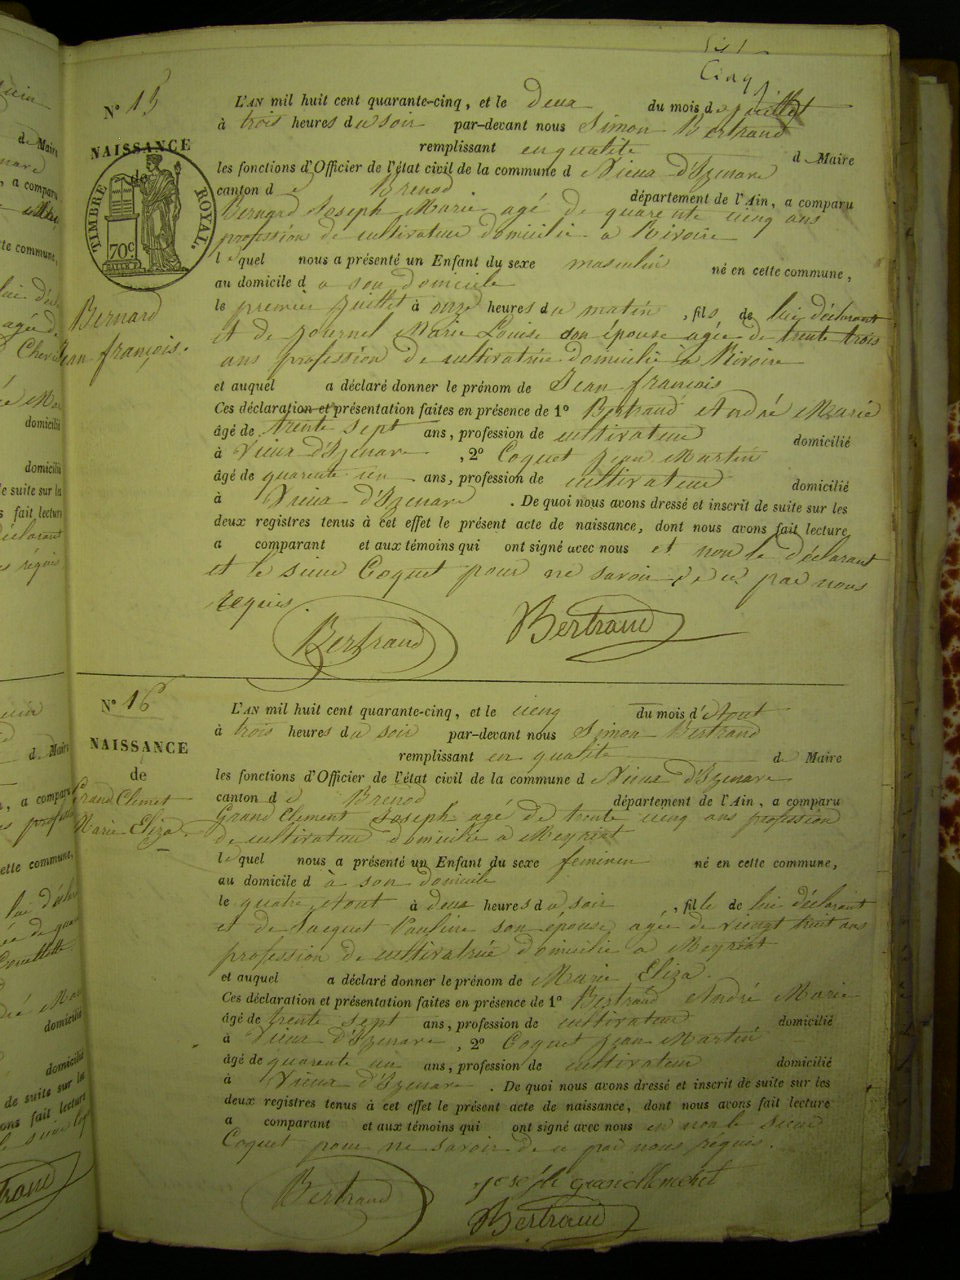 Cinq
N° 15
NAISSANCE
TIMBRE ROYAL.
70c
Bernard
Jean françois.
L'AN mil huit cent quarante-cinq, et le Deux du mois de juillet
à trois heures du soir par-devant nous Simon Bertrand
remplissant en qualité d Maire
les fonctions d'Officier de l'état civil de la commune d Vieux d'Izenave
canton d e Brenod département de l'Ain, a comparu
Bernard Joseph Marie agé de quarente cinq ans
profession de cultivateur domicilié a Rivoire
lequel nous a présenté un Enfant du sexe masculin né en cette commune,
au domicile d a son domicile
le premier juillet à onze heures du matin, fils de lui déclarant
et de Journel Marie Louise son épouse agée de trente trois
ans profession de cultivatrice domicilié à Rivoire
et auquel a déclaré donner le prénom de Jean francois
Ces déclaration et présentation faites en présence de 1° Bertrand André Marie
âgé de trente sept ans, profession de cultivateur domicilié
à Vieux d'Izenave, 2° Coquet Jean Martin
âgé de quarente un ans, profession de cultivateur domicilié
à Vieux d'Izenave. De quoi nous avons dressé et inscrit de suite sur les
deux registres tenus à cet effet le présent acte de naissance, dont nous avons fait lecture
a comparant et aux témoins qui ont signé avec nous et non le déclarant
et le sieur Coquet pour ne savoir de ce par nous
requis.
Bertrand Bertrand
N° 16
NAISSANCE
de
Grand Clemet
Marie Eliza.
L'AN mil huit cent quarante-cinq, et le cinq du mois d'Aout
à trois heures du soir par-devant nous Simon Bertrand
remplissant en qualité d Maire
les fonctions d'Officier de l'état civil de la commune d Vieux d'Izenave
canton d e Brenod département de l'Ain, a comparu
Grand Clement Joseph agé de trente cinq ans profession
de cultivateur domicilié a Meyriat
lequel nous a présenté un Enfant du sexe feminin né en cette commune,
au domicile d à son domicile
le quatre Aout à deux heures du soir, fille de lui déclarant
et de Jacquet Pauline son épouse agée de vingt huit ans
profession de cultivatrice domicilié a Meyriat
et auquel a déclaré donner le prénom de Marie Eliza.
Ces déclaration et présentation faites en présence de 1° Bertrand André Marie
âgé de trente sept ans, profession de cultivateur domicilié
à Vieux d'Izenave, 2° Coquet Jean Martin
âgé de quarente un ans, profession de cultivateur domicilié
à Vieux d'Izenave. De quoi nous avons dressé et inscrit de suite sur les
deux registres tenus à cet effet le présent acte de naissance, dont nous avons fait lecture
a comparant et aux témoins qui ont signé avec nous en non le sieur
Coquet pour ne savoir de ce par nous requis.
Bertrand
Bertrand